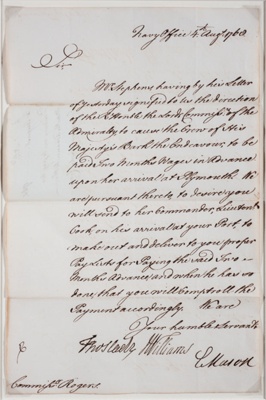 Navy Office 4th Augt 1768
Sir
Mr Stephens having by his Letter
of Yesterday signified to us the direction
of the Rt Honble the Lords Commissrs of the
Admiralty to cause the Crew of His
Majesty's Bark the Endeavour, to be
paid Two Months Wages in Advance
upon her arrival at Plymouth. We
are pursuant thereto, to desire you
will send to her Commander, Lieutent
Cook on his arrival at your Port, to
make out and deliver to you proper
Pay Lists for Paying the said Two
Months Advance, and when he has so
done, that you will comptroll the
Payment accordingly. We are
Your humble Servants
Thos Slade
Williams
G Mason
Commissr Rogers